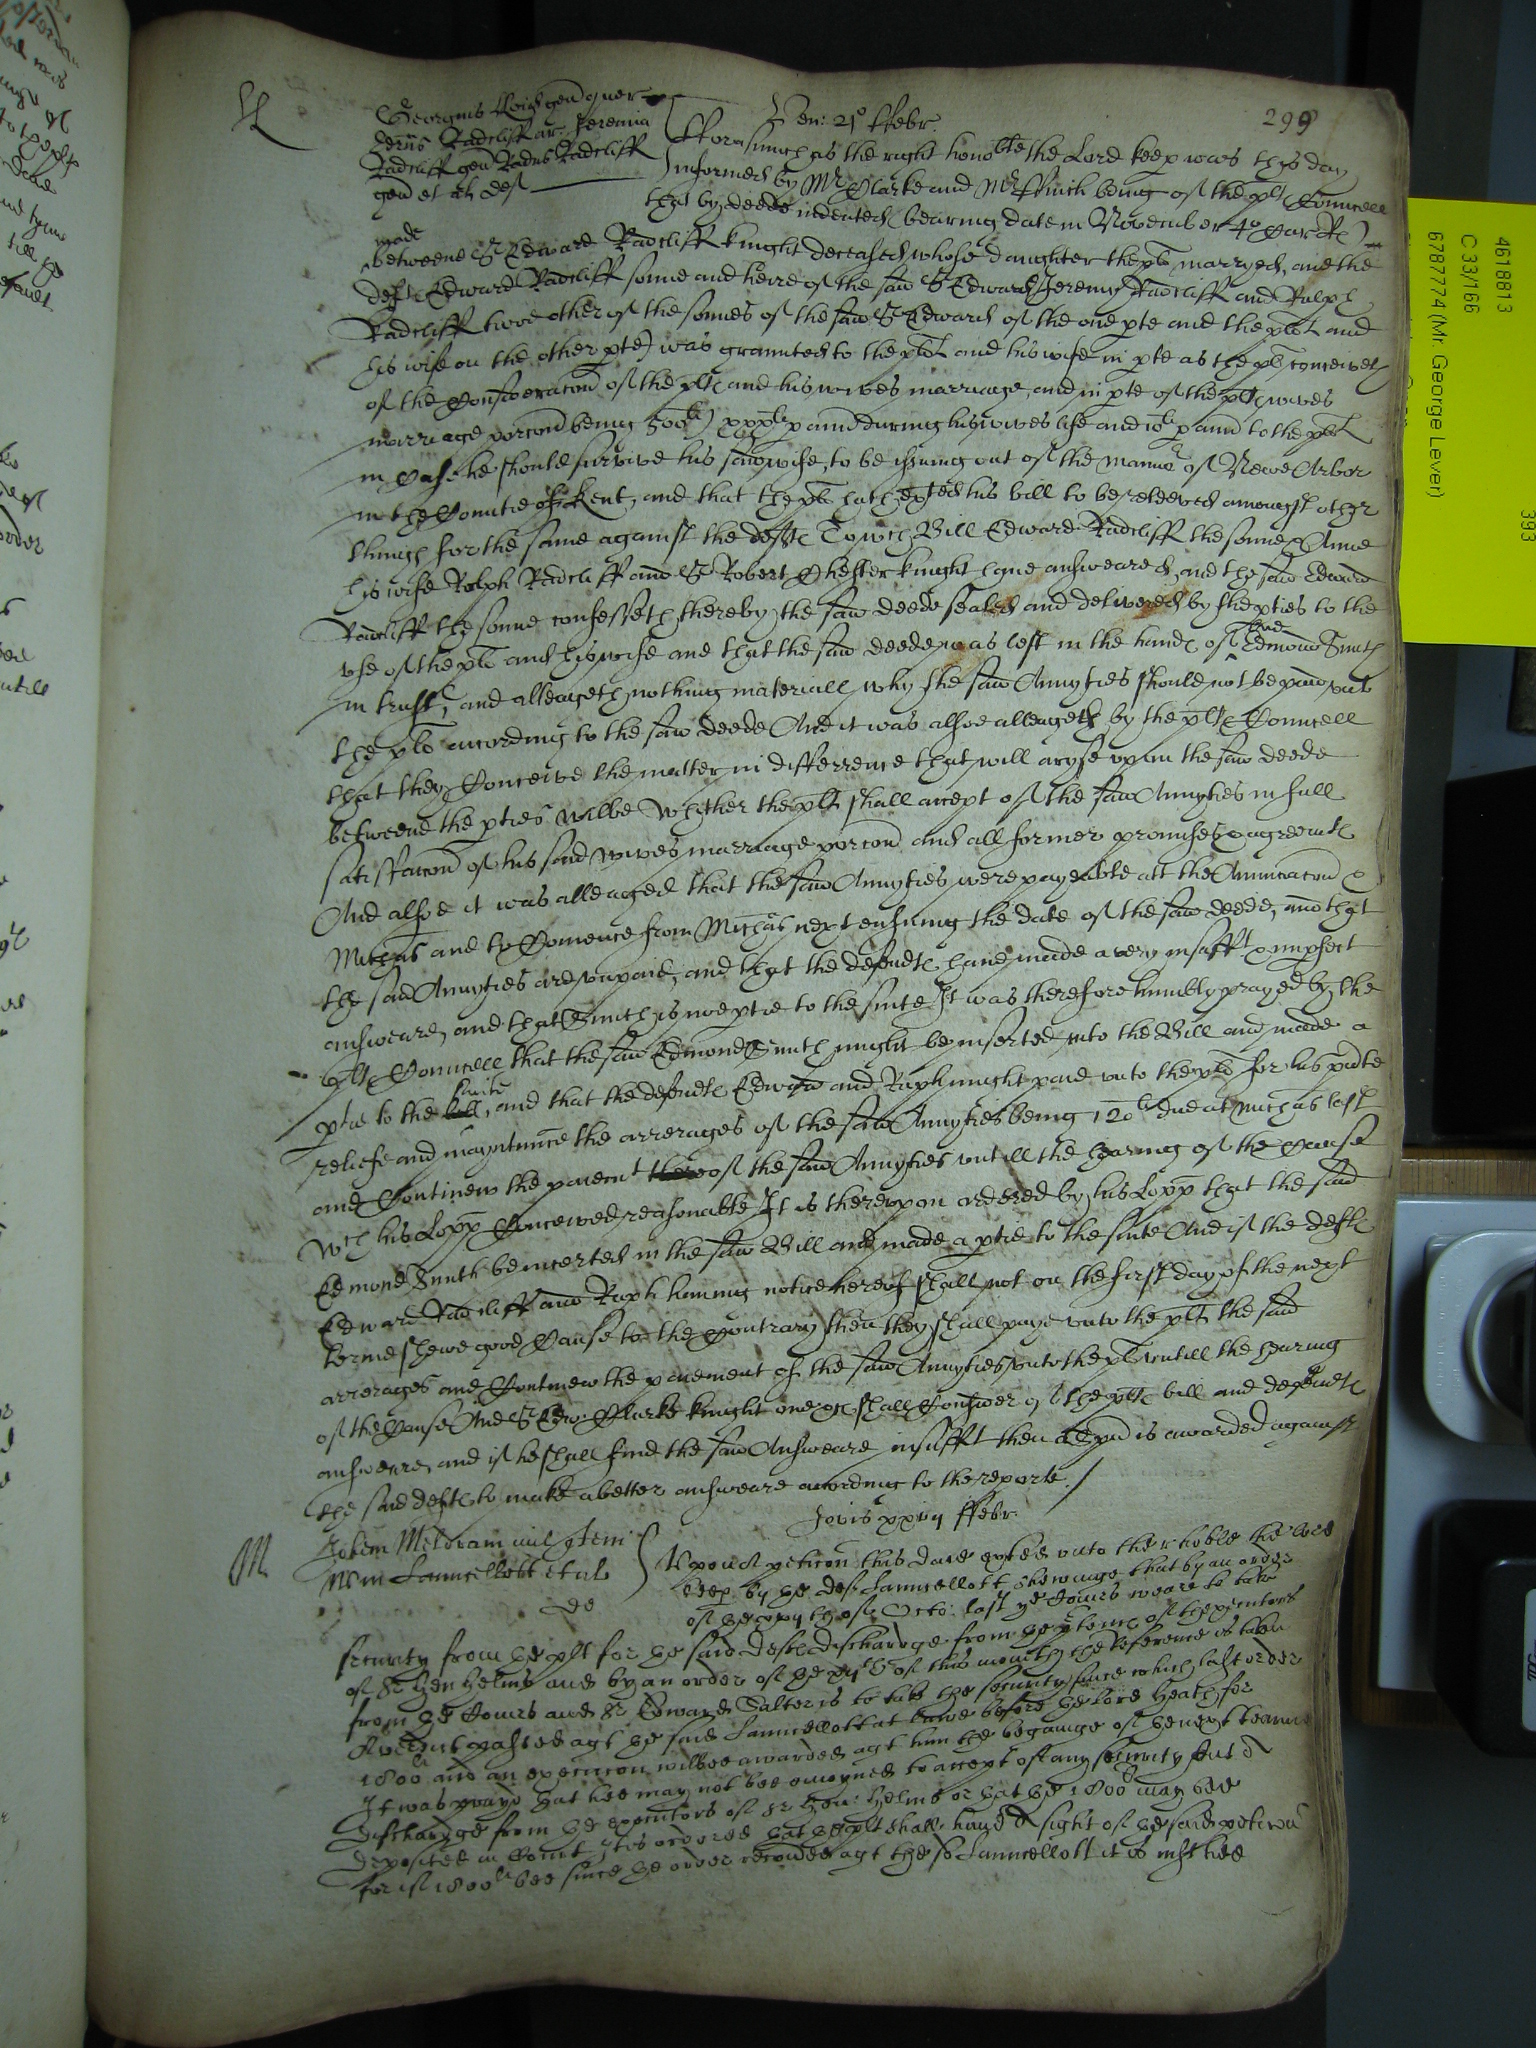 299
Ven: 21º ffebr.
Georgius gen quer
Edrus Radcliff ar Jeremia
Radcliff gen Radus Radcliff
gen et al def
fforasmuch as the right honoble the Lord keep was this day
informed by Mr Clarke and Mr ffinch being of the plts Councell
that by deede indented (bearing date in November 4º Car R)
made
betweene Sr Edward Radcliff knight deceased whose daughter the plt marryed, and the
deft Edward Radcliff sonne and heire of the said Sr Edward Jeremy Radcliff and Ralph
Radcliff twoe other of the sonnes of the said Sr Edward of the one pte and the plt and
his wife on the other pte) was graunted to the plt and his wife in pte as the plt conceiveth
of the Consideracon of the plts and his wives marriage, and in pte of the plts wives
marriage porcon being 500li) xxxli p ann during his wives life and 10li p ann to the plt
in Case he should survive his said wife, to be issuing out of the mannor of Newe Arbor
in the Countie of Kent, and that the plt hath his bill to be releeved amongst other
things for the same against the defts To wch Bill Edward Radcliff the sonne Anne
his wife Ralph Radcliff and Sr Robert Chester knight have answeared, and the said Edward
Radcliff the sonne confesseth thereby the said deede sealed and delivered by the pties to the
vse of the plt and his wife and that the said deede was left in the hands of one Edmond Smith
in trust, and alleageth nothing materiall why the said Annyties should not be paid vnto
the plt according to the said deede And it was alsoe alleageth by the plts Councell
that they Conceive the matter in differrence that will aryse vpon the said deede
betweene the pties wilbe Whither the plt shall accept of the said Annyties in full
satisfaccon of his said wives marriage porcon and all former promises & agreemts
And alsoe it was alleaged that the said Annyties were payeable att the Annunciacon &
Michas and to Comence from Michas next ensuing the date of the said deede, and that
the said Annyties are vnpaid, and that the defendts have made a very insufft & imperfect
answeare, and that Smith is noe ptie to the suite It was therefore humbly prayed by the
plts Councell that the said Edmond Smith might be inserted into the Bill and made a
ptie to the suite, and that the defendts Edward and Raph might paie vnto the plt for his pnte
reliefe and mayntennce the arrerages of the said Annyties being 120li due at Michas last
and Continew the paiemt of the said Annyties vntill the hearing of the Cause
Wch his Lopp Conceived reasonable It is therevpon ordered by his Lopp that the said
Edmond Smith be incerted in the said Bill and made a ptie to the suite And if the defts
Edward Radcliff and Raph having notice hereof shall not on the first day of the next
terme shewe good Cause to the Contrary then they shall paye vnto the plt the said
arrerages and Continew the paiement of the said Annyties vnto the plt vntill the hearing
of the Cause And Sr Edw: Clarke knight one &c shall Consider of the plts bill and defendts
answeare, and if he shall find the said Answeare insufft then a Spna is awarded against
the said defts to make a better answeare according to the reporte
Jovis xxvij ffebr
Meldram mil
Lanncellott et al
de
Vpon A peticon this daie vnto the r honble the lord
keep by ye def Lanncellott shewinge that by an order
of ye of Octo: last ye Cours weare to take
security from ye plt for ye said defts dischardge from ye
of Sr Hen Helms and by an order of ye of this month the Reference is taken
from ye Cours and Sr Edward Salter is to take the security since which last order
A verdict passed agt ye said Lanncellott at before ye lord Heath for
1800li and an execucon wilbee awarded agt him the begininge of ye next tearme
It was prayd yat hee may not bee enioyned to accept of any security but A
dischardge from ye executors of Sr Hen: Helms or yat ye 1800li may bee
deposited in Court It is ordered yat ye plt shall have A sight of ye said peticon
for if 1800li bee since ye order recouered agt the sd Lanncellott it is iust hee